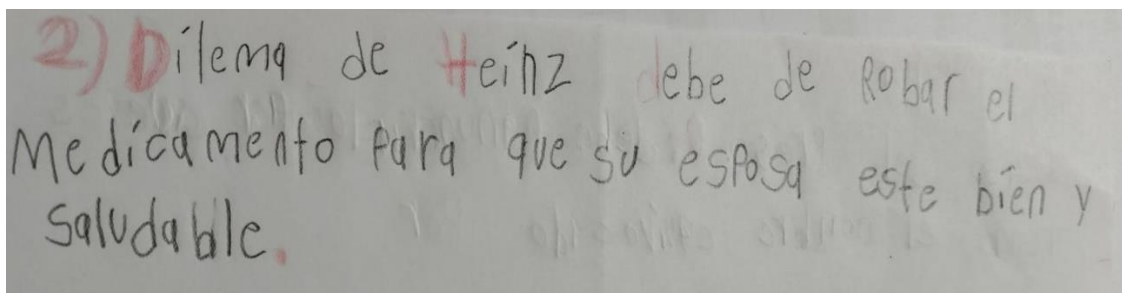 2) Dilema de Heinz debe de Robar el
Medicamento Para que su esposa este bien y
Saludable.